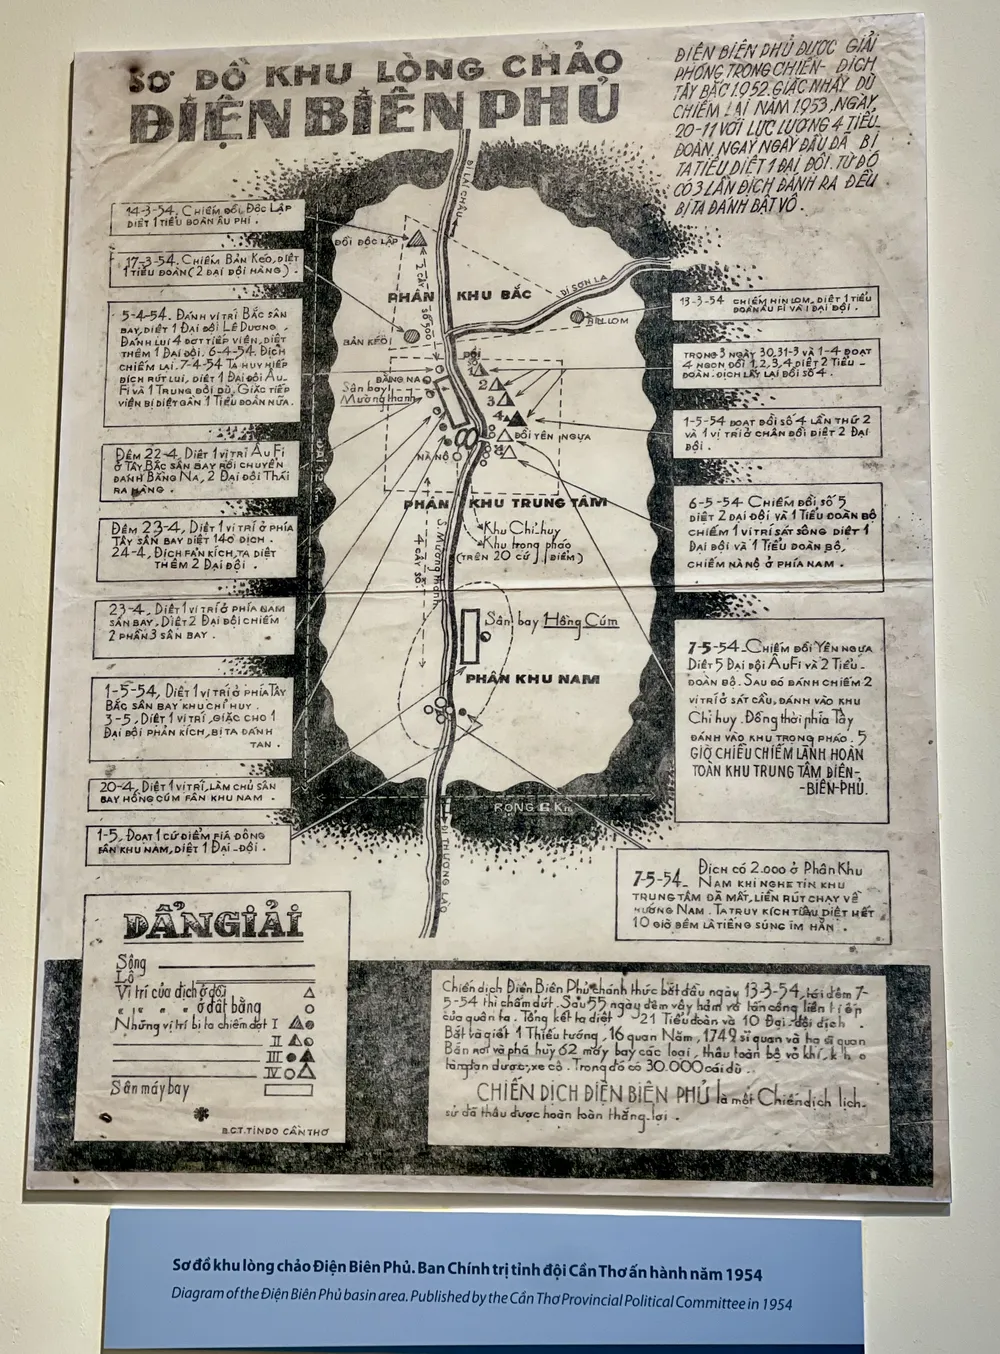 SƠ ĐỒ KHU LÒNG CHẢO
ĐIỆN BIÊN PHỦ
ĐIỆN BIÊN PHỦ ĐƯỢC GIẢI
PHÓNG TRONG CHIẾN-DỊCH
TÂY BẮC 1952. GIẶC NHẢY DÙ
CHIẾM LẠI NĂM 1953, NGÀY
20-11 VỚI LỰC LƯỢNG 4 TIỂU
ĐOÀN, NGAY NGÀY ĐẦU ĐÃ BỊ
TA TIÊU DIỆT 1 ĐẠI ĐỘI. TỪ ĐÓ
CÓ 3 LẦN ĐỊCH ĐÁNH RA ĐỀU
BỊ TA ĐÁNH BẬT VÔ.
14-3-54, CHIẾM ĐỒI ĐỘC LẬP
DIỆT 1 TIỂU ĐOÀN ÂU PHI.
17-3-54. CHIẾM BẢN KÉO, DIỆT
1 TIỂU ĐOÀN (2 ĐẠI ĐỘI HÀNG).
5-4-54. ĐÁNH VỊ TRÍ BẮC SÂN
BAY, DIỆT 1 ĐẠI ĐỘI LÊ DƯƠNG.
ĐÁNH LUI 4 ĐỢT TIẾP VIỆN, DIỆT
THÊM 1 ĐẠI ĐỘI. 6-4-54. ĐỊCH
CHIẾM LẠI. 7-4-54 TA HUY HIẾP
ĐỊCH RÚT LUI, DIỆT 1 ĐẠI ĐỘI ÂU
FI VÀ 1 TRUNG ĐỘI DÙ. GIẶC TIẾP
VIỆN BỊ DIỆT GẦN 1 TIỂU ĐOÀN NỮA.
ĐÊM 22-4, DIỆT 1 VỊ TRÍ ÂU FI
Ở TÂY BẮC SÂN BAY RỒI CHUYỂN
ĐÁNH BẢNG NA, 2 ĐẠI ĐỘI THÁI
RA HÀNG.
ĐÊM 23-4, DIỆT 1 VỊ TRÍ Ở PHÍA
TÂY SÂN BAY DIỆT 140 ĐỊCH.
24-4, ĐỊCH FẢN KÍCH, TA DIỆT
THÊM 2 ĐẠI ĐỘI.
23-4, DIỆT 1 VỊ TRÍ Ở PHÍA NAM
SÂN BAY. DIỆT 2 ĐẠI ĐỘI CHIẾM
2 PHẦN 3 SÂN BAY.
1-5-54, DIỆT 1 VỊ TRÍ Ở PHÍA TÂY
BẮC SÂN BAY KHU CHỈ HUY.
3-5, DIỆT 1 VỊ TRÍ, GIẶC CHO 1
ĐẠI ĐỘI PHẢN KÍCH, BỊ TA ĐÁNH
TAN.
20-4, DIỆT 1 VỊ TRÍ, LÀM CHỦ SÂN
BAY HỒNG CÚM FÂN KHU NAM.
1-5, ĐOẠT 1 CỨ ĐIỂM FÍA ĐÔNG
FÂN KHU NAM, DIỆT 1 ĐẠI-ĐỘI.
ĐI LAI CHÂU
ĐỒI ĐỘC LẬP
PHÂN KHU BẮC
ĐI SƠN LA
HIN LOM
BẢN KÉO
ĐỒI
1
2
3
4
5
BẢNG NA
Sân bay
Mường thanh
ĐỒI YÊN NGỰA
NÀ NỘ
PHÂN KHU TRUNG TÂM
Khu Chỉ huy
Khu trọng pháo
(TRÊN 20 CỨ ĐIỂM)
S. Mường thanh
4 CÂY SỐ
Sân bay Hồng Cúm
PHÂN KHU NAM
RỘNG 6 Km
ĐI THƯỢNG LÀO
13-3-54 CHIẾM HIN LOM, DIỆT 1 TIỂU
ĐOÀN ÂU FI VÀ 1 ĐẠI ĐỘI.
TRONG 3 NGÀY 30, 31-3 VÀ 1-4 ĐOẠT
4 NGỌN ĐỒI 1, 2, 3, 4 DIỆT 2 TIỂU-
ĐOÀN. ĐỊCH LẤY LẠI ĐỒI SỐ 4.
1-5-54 ĐOẠT ĐỒI SỐ 4 LẦN THỨ 2
VÀ 1 VỊ TRÍ Ở CHÂN ĐỒI DIỆT 2 ĐẠI
ĐỘI.
6-5-54 CHIẾM ĐỒI SỐ 5
DIỆT 2 ĐẠI ĐỘI VÀ 1 TIỂU ĐOÀN BỘ
CHIẾM 1 VỊ TRÍ SÁT SÔNG DIỆT 1
ĐẠI ĐỘI VÀ 1 TIỂU ĐOÀN BỘ,
CHIẾM NÀ NỘ Ở PHÍA NAM.
7-5-54. CHIẾM ĐỒI YÊN NGỰA
DIỆT 5 ĐẠI ĐỘI ÂU FI VÀ 2 TIỂU-
ĐOÀN BỘ. SAU ĐÓ ĐÁNH CHIẾM 2
VỊ TRÍ Ở SÁT CẦU, ĐÁNH VÀO KHU
Chỉ huy. Đồng thời phía Tây
ĐÁNH VÀO KHU TRỌNG PHÁO. 5
GIỜ CHIỀU CHIẾM LÃNH HOÀN
TOÀN KHU TRUNG TÂM ĐIỆN-
-BIÊN-PHỦ.
7-5-54. ĐỊCH CÓ 2.000 Ở PHÂN KHU
NAM KHI NGHE TIN KHU
TRUNG TÂM ĐÃ MẤT, LIỀN RÚT CHẠY VỀ
MƯỜNG NAM. TA TRUY KÍCH TIÊU DIỆT HẾT
10 GIỜ ĐÊM LÀ TIẾNG SÚNG IM HẲN.
DẪN GIẢI
Sông
Lộ
Vị trí của địch ở đồi
" " " " ở đất bằng
Những vị trí bị ta chiếm đợt I
II
III
IV
Sân máy bay
B.C.T. TỈNĐO CẦN THƠ
Chiến dịch Điện Biên Phủ chánh thức bắt đầu ngày 13-3-54, tới đêm 7-
5-54 thì chấm dứt. Sau 55 ngày đêm vây hãm và tấn công liên tiếp
của quân ta. Tổng kết ta diệt 21 Tiểu đoàn và 10 Đại-đội địch.
Bắt và giết 1 Thiếu tướng, 16 quan Năm, 1749 sĩ quan và hạ sĩ quan
Bắn rơi và phá hủy 62 máy bay các loại, thâu toàn bộ võ khí, kho
tàng đạn dược, xe cộ. Trong đó có 30.000 cái dù.
CHIẾN DỊCH ĐIỆN BIÊN PHỦ là một Chiến dịch lịch-
sử đã thâu được hoàn toàn thắng-lợi.
Sơ đồ khu lòng chảo Điện Biên Phủ. Ban Chính trị tỉnh đội Cần Thơ ấn hành năm 1954
Diagram of the Điện Biên Phủ basin area. Published by the Cần Thơ Provincial Political Committee in 1954